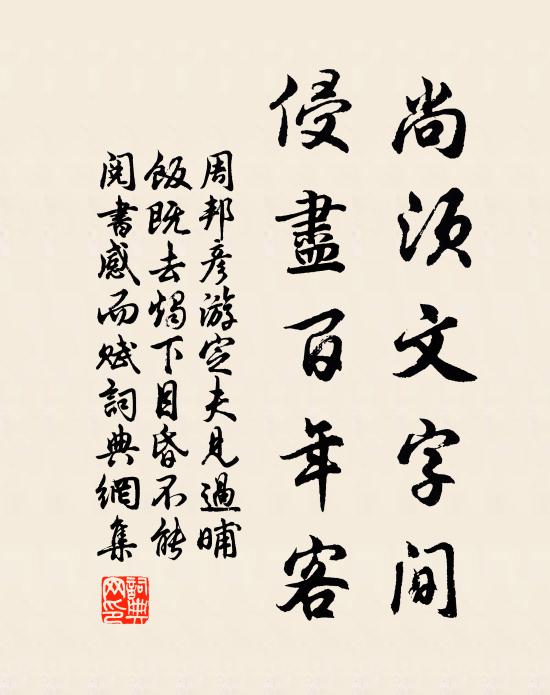 尚須文字間
侵盡百年客
周邦彥游定夫見過晡
飯既去燭下目昏不能
閱書感而賦詞典網集
詞典網印